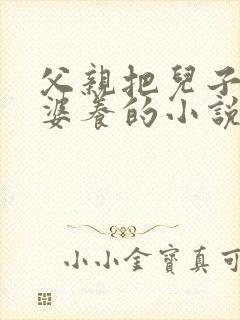 父親把兒子
婆養的小說
小小金寶真可